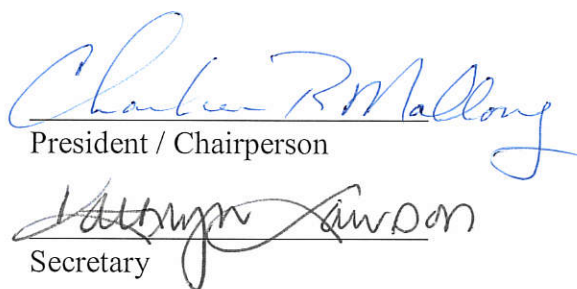 Charleen R Mallory
President / Chairperson
Kathryn Lawson
Secretary